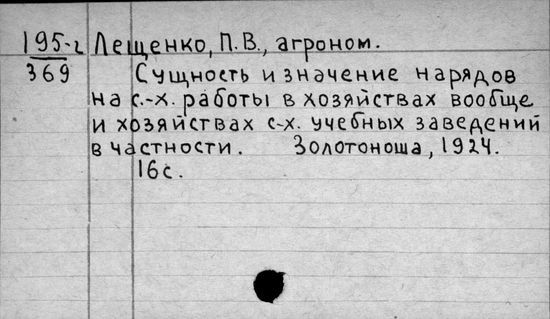 195-г Лещенко, П.В., агроном.
369 Сущность и значение нарядов
на с.-х. работы в хозяйствах вообще
и хозяйствах с-х. учебных заведений
в частности. Золотоноша, 1924.
16с.